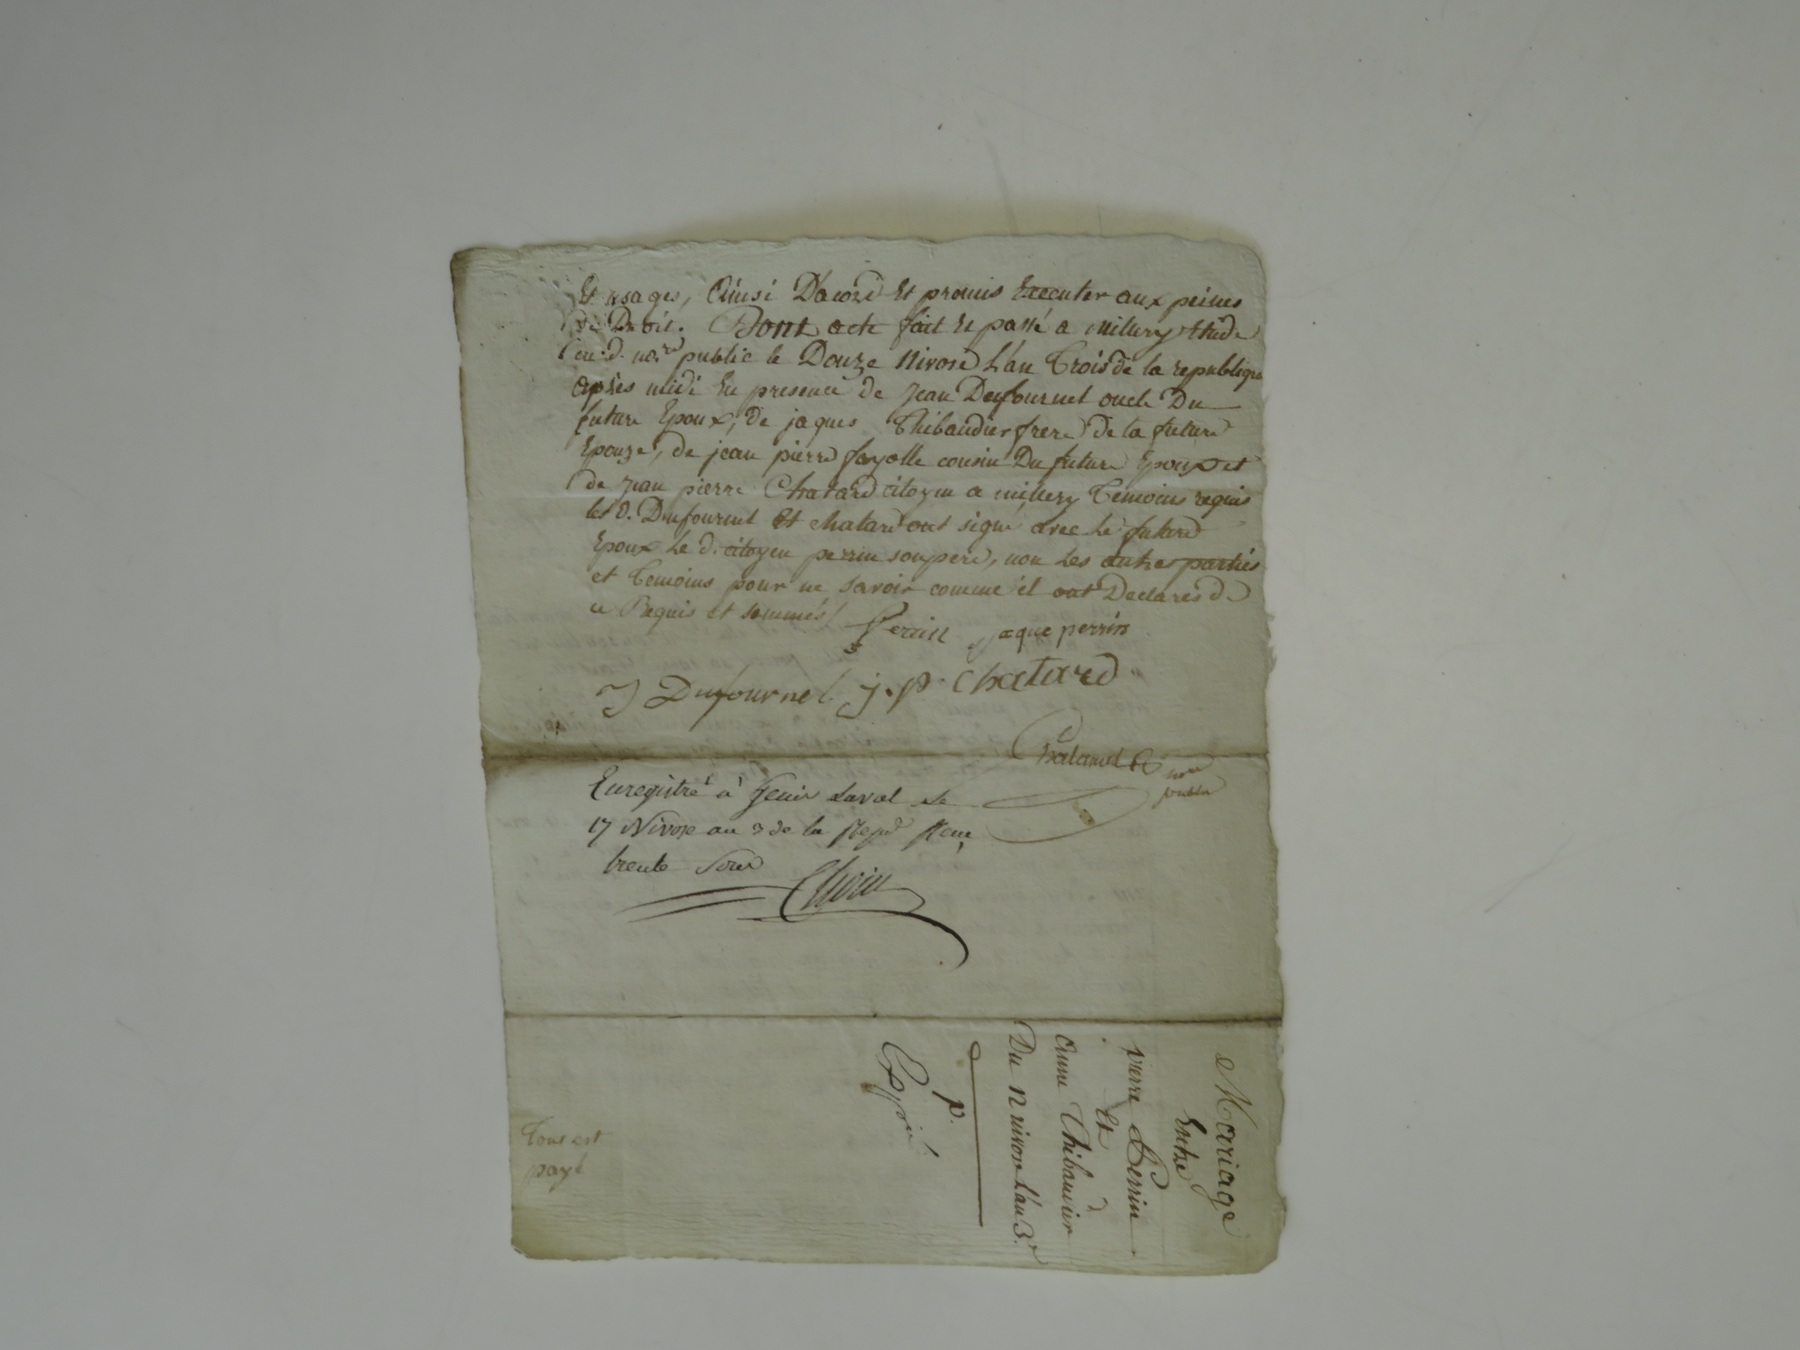 Et usages, Ainsi D'acord Et promis Executer aux peines
de Droit. Dont acte fait Et passé a millery Etude
du d. no.re public le Douze Nivose L'an Trois de la republique
après midi En presence de Jean Dufournel oncle Du
future Epoux, de jaques Thibaudier frere de la future
Epouze, de jean pierre fayolle cousin Du future Epoux et
de Jean pierre Chatard citoyen a millery Temoins requis
les d. Dufournel Et chatard ont signé avec le future
Epoux Le d. citoyen perrin son pere, non les autres parties
et Temoins pour ne savoir comme il ont Declarés de
ce Requis et sommés
Perrin jaque perrin
J Dufournel j. p. Chatard
Enregistré à Genis Laval le
17 Nivose an 3 de la Repu
trente sous
Mariage
Entre
pierre Perrin
Et
Anne Thibaudier
Du 12 nivose L'an 3.e
p.
Expedié
Tout est
payé